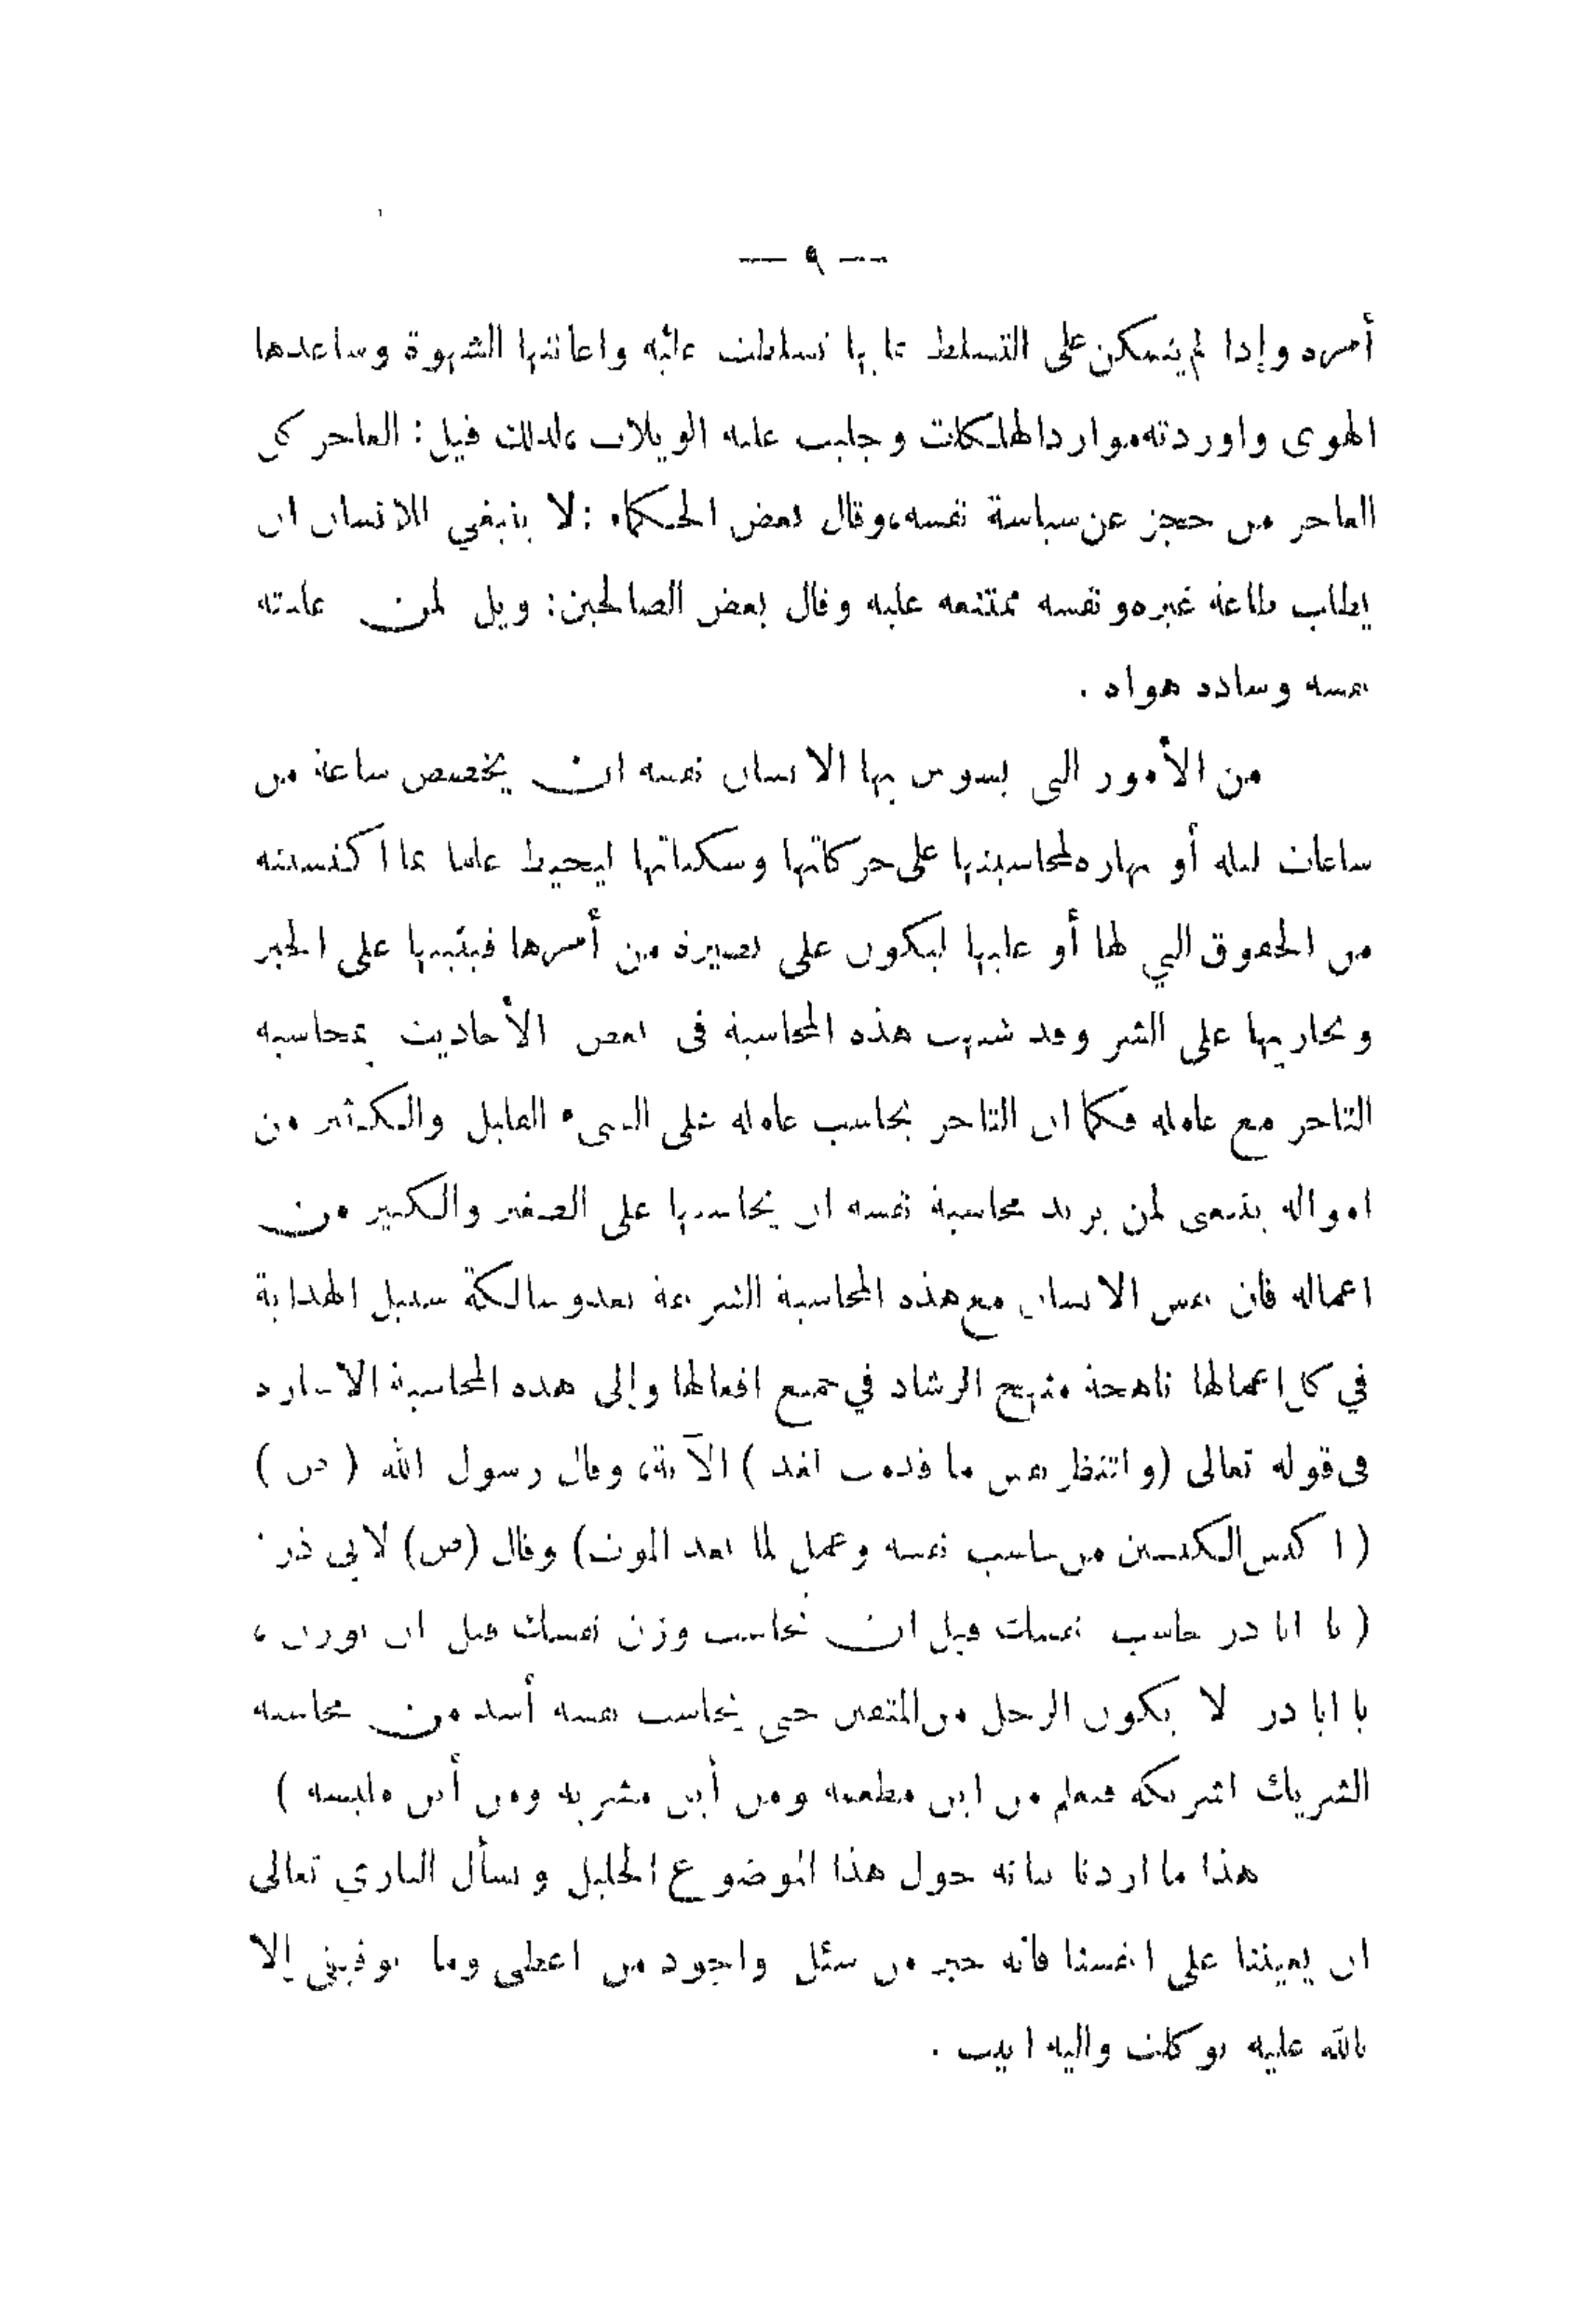 — ٩ —
أمره وإذا لم يتمكن على التسلط عليها تسلطت عليه واعانتها الشهوة وساعدها
الهوى واوردته موارد الهلكات وجلبت عليه الويلات ، لذلك قيل : العاجر كل
العاجر من عجز عن سياسة نفسه ، وقال بعض الحكماء : لا ينبغي للانسان ان
يطلب طاعة غيره ونفسه ممتنعه عليه وقال بعض الصالحين : ويل لمن غلبته
نفسه وساده هواه .
من الأمور التي يسوس بها الانسان نفسه ان يخصص ساعة من
ساعات ليله أو نهاره لمحاسبتها على حركاتها وسكناتها ليحيط علما بما اكتسبته
من الحقوق التي لها أو عليها ليكون على بصيرة من أمرها فيثيبها على الخير
ويحاربها على الشر وقد شبهت هذه المحاسبة في بعض الأحاديث بمحاسبة
التاجر مع عامله فكما ان التاجر يحاسب عامله على الشيء القليل والكثير من
امواله ينبغي لمن يريد محاسبة نفسه ان يحاسبها على الصغير والكبير من
اعماله فان نفس الانسان مع هذه المحاسبة الشريفة تغدو سالكة سبيل الهداية
في كل اعمالها ناهجة منهج الرشاد في جميع افعالها وإلى هذه المحاسبة الاشارة
في قوله تعالى ( ولتنظر نفس ما قدمت لغد ) الآية ، وقال رسول الله ( ص )
( اكيس الكيسين من حاسب نفسه وعمل لما بعد الموت ) وقال ( ص ) لابي ذر :
( يا ابا ذر حاسب نفسك قبل ان تحاسب وزن نفسك قبل ان توزن ،
يا ابا ذر لا يكون الرجل من المتقين حتى يحاسب نفسه أشد من محاسبة
الشريك لشريكه فيعلم من اين مطعمه ومن أين مشربه ومن أين ملبسه )
هذا ما اردنا بيانه حول هذا الموضوع الجليل ونسأل الباري تعالى
ان يعيننا على انفسنا فانه خير من سئل واجود من اعطى وما توفيقي إلا
بالله عليه توكلت واليه انيب .